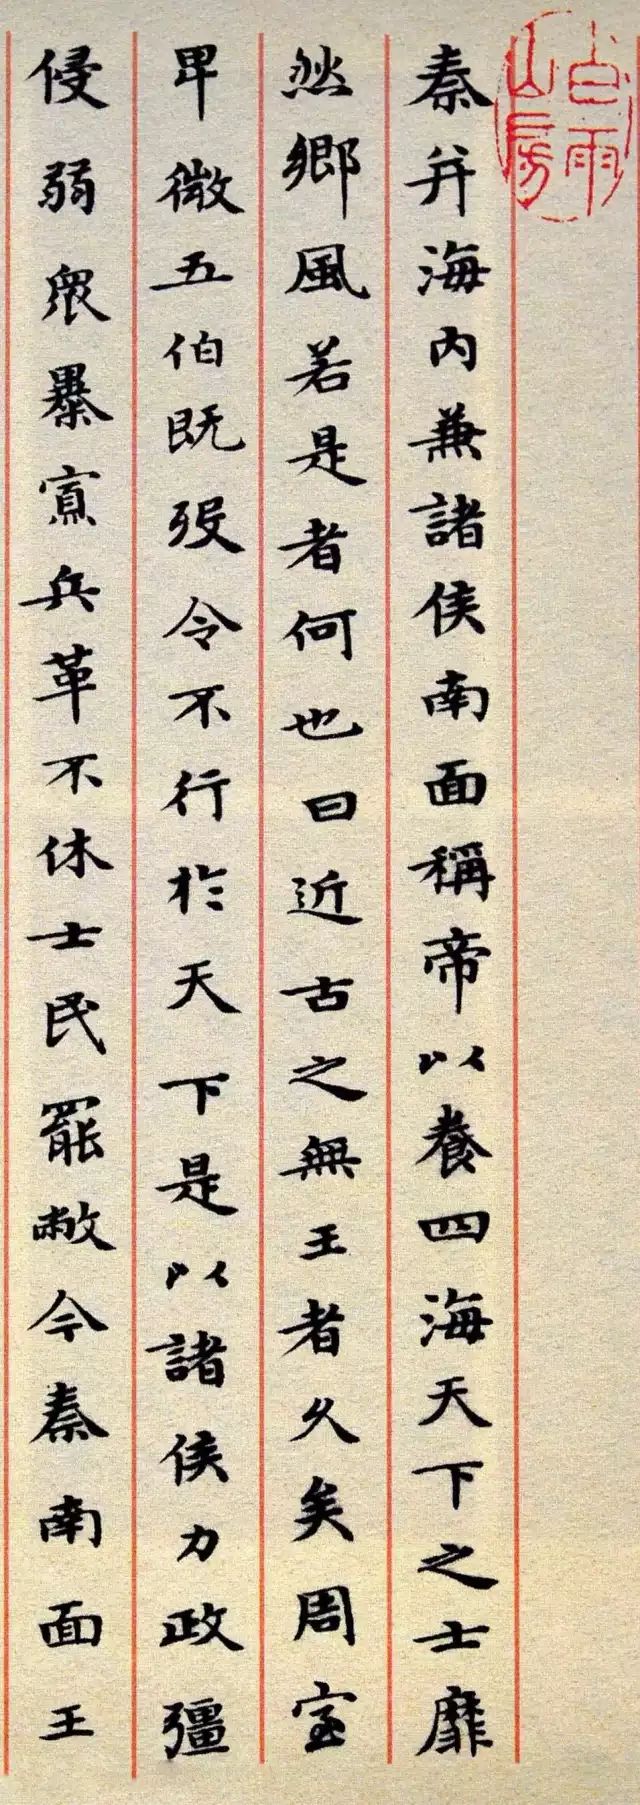 白雨
山房
秦并海内兼諸侯南面稱帝以養四海天下之士靡
然鄉風若是者何也曰近古之無王者久矣周室
卑微五伯既歿令不行於天下是以諸侯力政彊
侵弱衆暴寡兵革不休士民罷敝今秦南面王